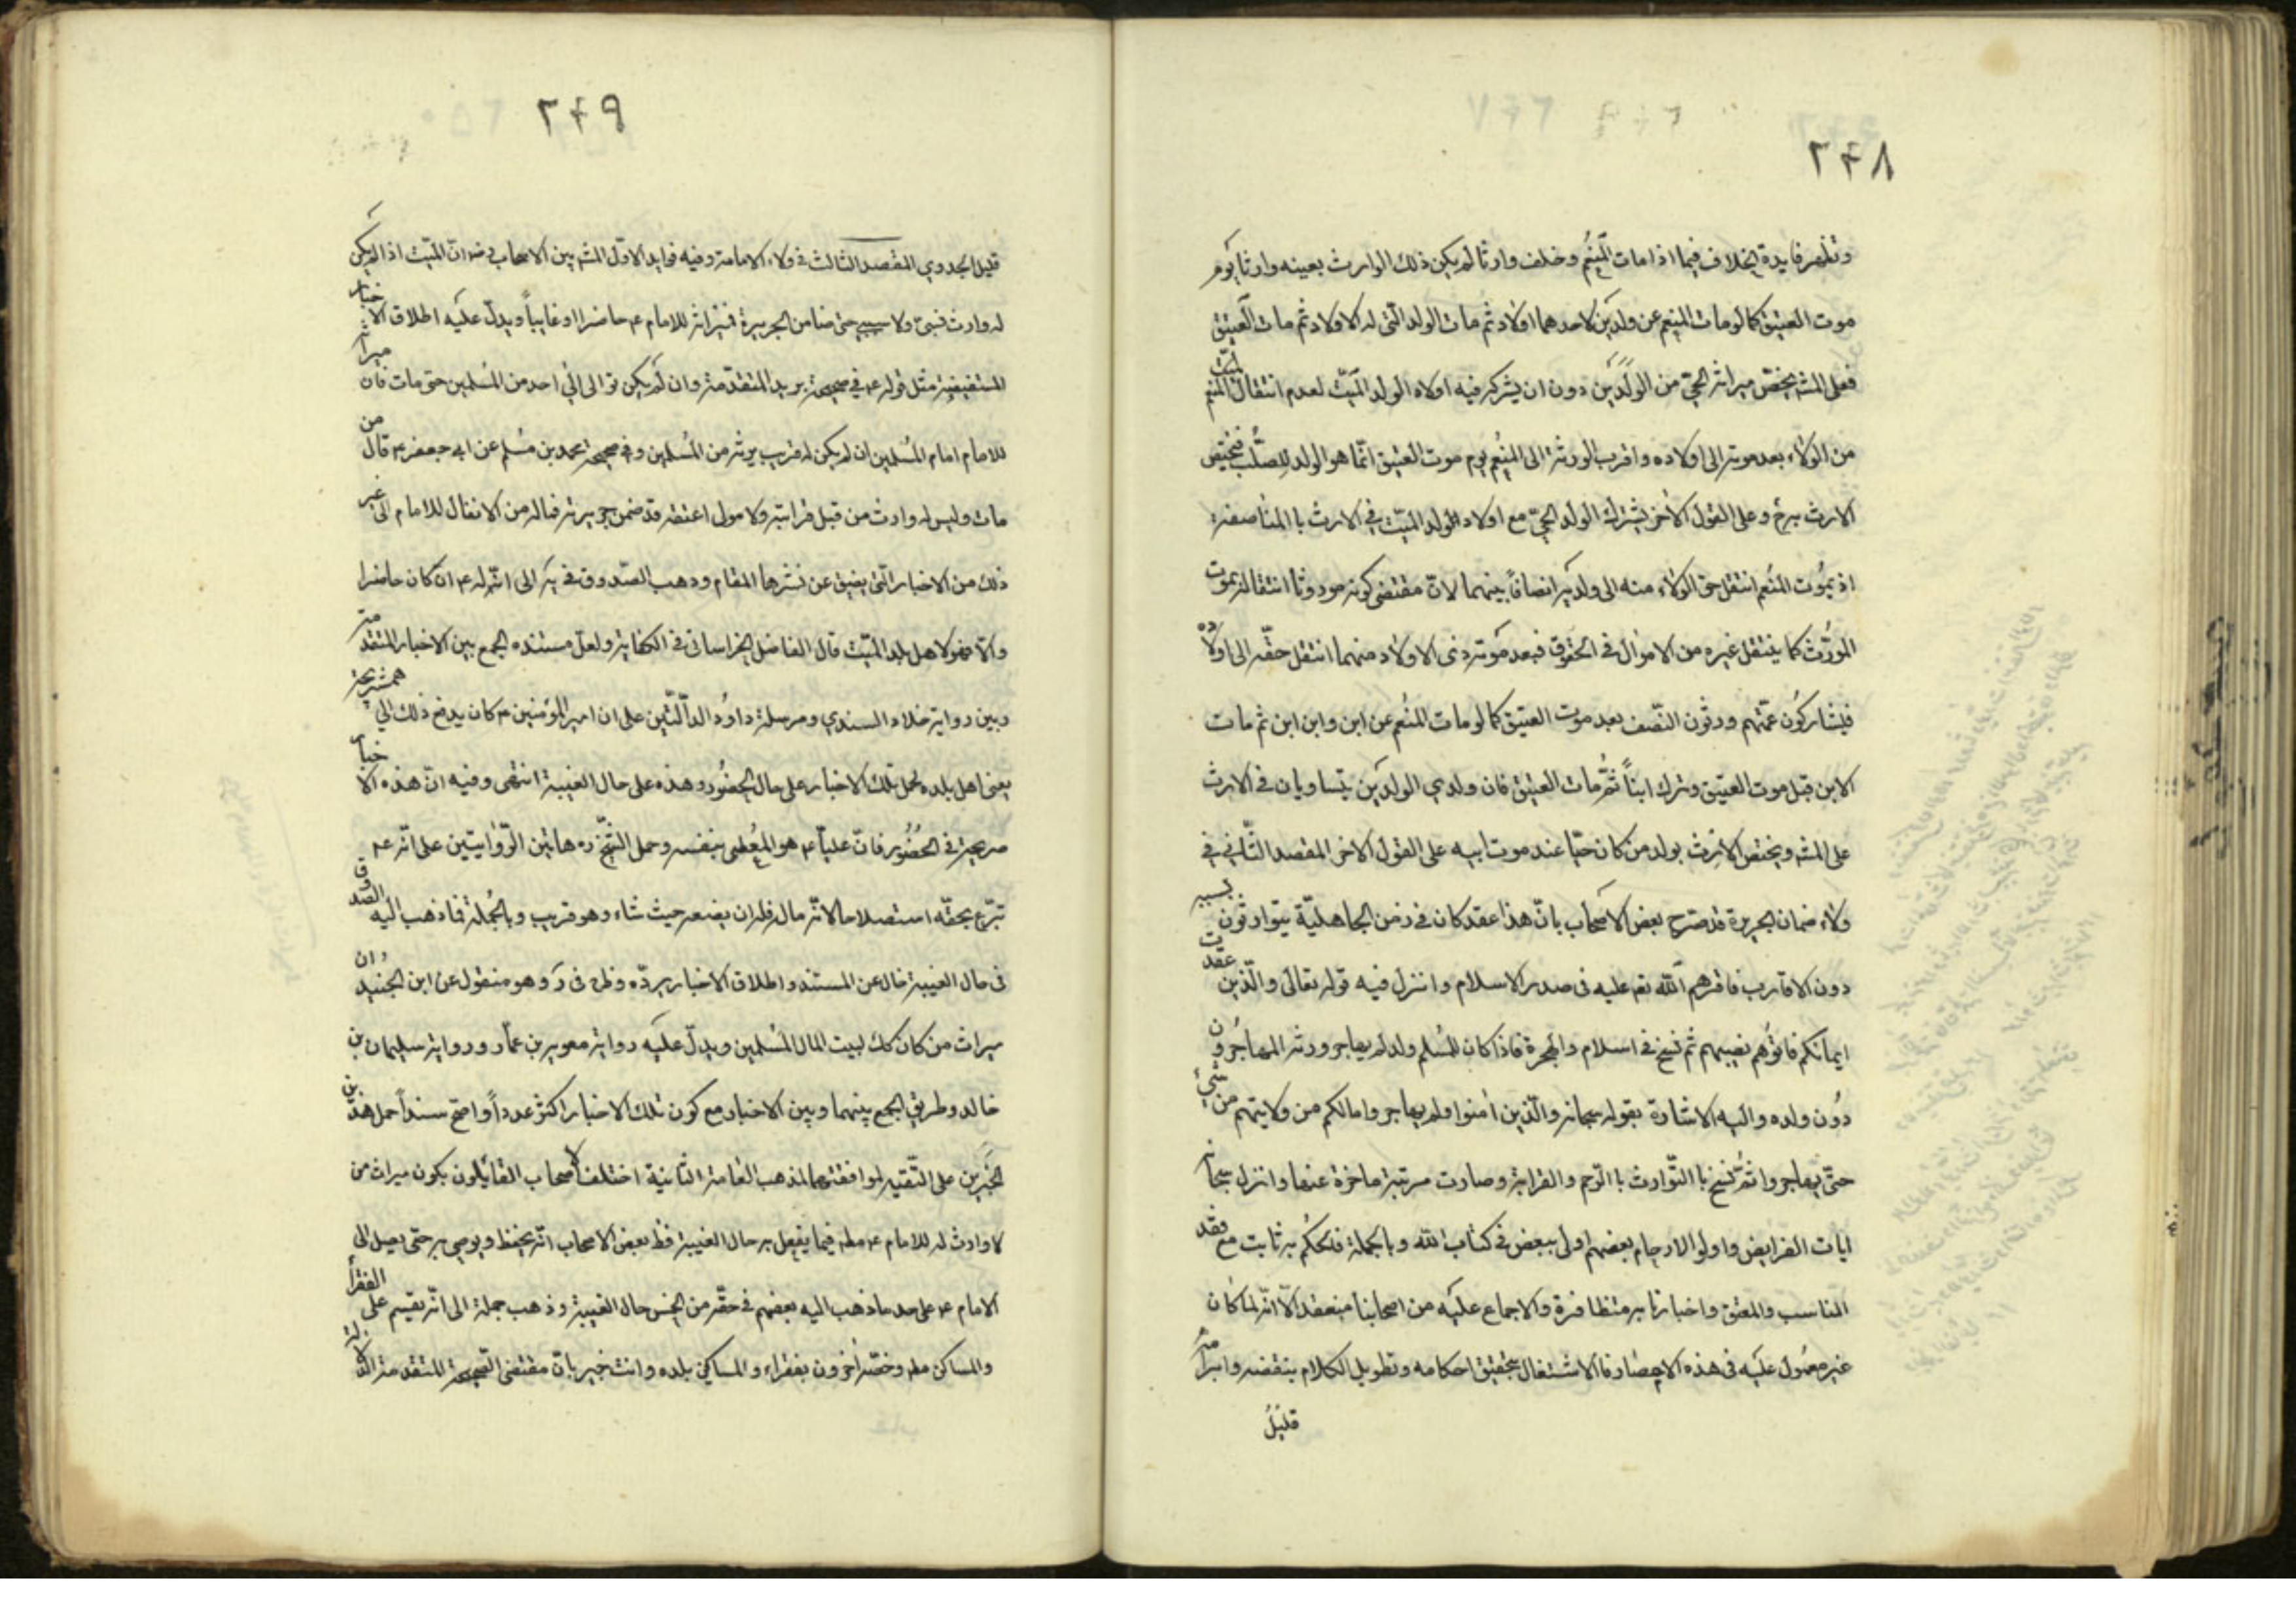 ٢۴٨
وتظهر فايدة الخلاف فيما اذا مات المنعم وخلف وارثا لم يكن ذلك الوارث بعينه وارثا يوم
موت العتيق كما لو مات المنعم عن ولدين لاحدهما اولاد ثم مات الولد التى له الاولاد ثم مات العتيق
فعلى المشه يختص ميراثه الحى من الولدين دون ان يشركه فيه اولاد الولد الميت لعدم انتقال المنعم
من الولاء بعد موته الى اولاده واقرب الورثة الى المنعم يوم موت العتيق انما هو الولد للصلب فيختص
الارث به وعلى القول الاخر يشترك الولد الحى مع اولاد الولد الميت فى الارث با المناصفة
اذ بموت المنعم انتقل حق الولاء منه الى ولديه انصافا بينهما لان مقتضى كونه موروثا انتقاله بموت
المورث كما ينتقل غيره من الاموال فى الحقوق فبعد موته ذى الاولاد منهما انتقل حقه الى اولاده
فيشاركون عمهم ورثون النصف بعد موت العتيق كما لو مات المنعم عن ابن وابن ابن ثم مات
الابن قبل موت العتيق وترك ابنا ثم مات العتيق فان ولدي الولدين يتساويان فى الارث
على المشه ويختص الارث بولد من كان حيا عند موت ابيه على القول الاخر المقصد الثانى فى
ولاء ضمان الجريرة قد صرح بعض الاصحاب بان هذا عقد كان فى زمن الجاهلية يتوارثون بسببه
دون الاقارب فاقرهم الله تعه عليه فى صدر الاسلام وانزل فيه قوله تعالى والذين عقدت
ايمانكم فاتوهم نصيبهم ثم نسخ فى اسلام والهجرة فاذا كان للمسلم ولد لم يهاجر ورثه المهاجرون
دون ولده واليه الاشارة بقوله سبحانه والذين امنوا ولم يهاجروا مالكم من ولايتهم من شيئ
حتى يهاجروا ثم نسخ با التوارث با الرحم والقرابة وصارت مرتبة ماخرة عنها وانزل سبحانه
ايات الفرايض واولوا الارحام بعضهم اولى ببعض فى كتاب الله وبالجملة فالحكم به ثابت مع فقد
المناسب والمعتق واخبارنا به متظافرة والاجماع عليه من اصحابنا منعقد الا انه لما كان
غير معمول عليه فى هذه الاعصار فالاشتغال بتحقيق احكامه وتطويل الكلام بنقضه وابرامه
قليل
٢۴٩
قليل الجدوى المقصد الثالث فى ولاء الامامة وفيه فوايد الاول المشه بين الاصحاب رض ان الميت اذا لم يكن
له وارث نسبى ولا سببى حتى ضامن الجريرة فميراثه للامام عه حاضرا او غايبا ويدل عليه اطلاق الاخبار
المستفيضة مثل قوله عه فى صحيحة بريد المتقدمة وان لم يكن توالى الى احد من المسلمين حتى مات فان ميراثه
للامام امام المسلمين ان لم يكن له قريب يرثه من المسلمين وفى صحيحة محمد بن مسلم عن ابى جعفر عه قال من
مات وليس له وارث من قبل قرابته ولا مولى اعتقه قد ضمن جريرته فماله من الانفال للامام الى غير
ذلك من الاخبار التى يضيق عن نشرها المقام وذهب الصدوق فى يه الى انه له عه ان كان حاضرا
والا فهو لاهل بلد الميت قال الفاضل الخراسانى فى الكفاية ولعل مستنده الجمع بين الاخبار المتقدمة
وبين رواية خلاد السندي ومرسلة داود الدالتين على ان امير المؤمنين عه كان يدفع ذلك الى همشهريجة
يعنى اهل بلده بحمل تلك الاخبار على حال الحضور وهذه على حال الغيبة انتهى وفيه ان هذه الاخبار
صريحة فى الحضور فان عليا عه هو المعطى بنفسه وحمل الشيخ ره هاتين الروايتين على انه عه
تبرع بحقه استصلاحا لانه مال فله ان يضعه حيث شاء وهو قريب وبالجملة فما ذهب اليه الصدوق
فى حال الغيبة خال عن المستند واطلاق الاخبار يرده وظ فى رد وهو منقول عن ابن الجنيد وان
ميراث من كان كك لبيت المال المسلمين ويدل عليه رواية معوية بن عمار ورواية سليمان بن
خالد وطريق الجمع بينهما وبين الاخبار مع كون تلك الاخبار اكثر عددا واصح سندا حمل هذين
الخبرين على التقيه لموافقتهما لمذهب العامة الثانية اختلف الاصحاب القايلون بكون ميراث من
لا وارث له للامام عه مطه فيما يفعل به حال الغيبة فظ بعض الاصحاب انه يحفظ ويوصى به حتى يصل الى
الامام عه على حد ما ذهب اليه بعضهم فى حقه من الخمس حال الغيبة وذهب جملة الى انه يقسم على الفقراء
والمساكن مطه وخصه اخرون بفقراء والمساكين بلده وانت خبير بان مقتضى الصحيحة المتقدمة الدالة